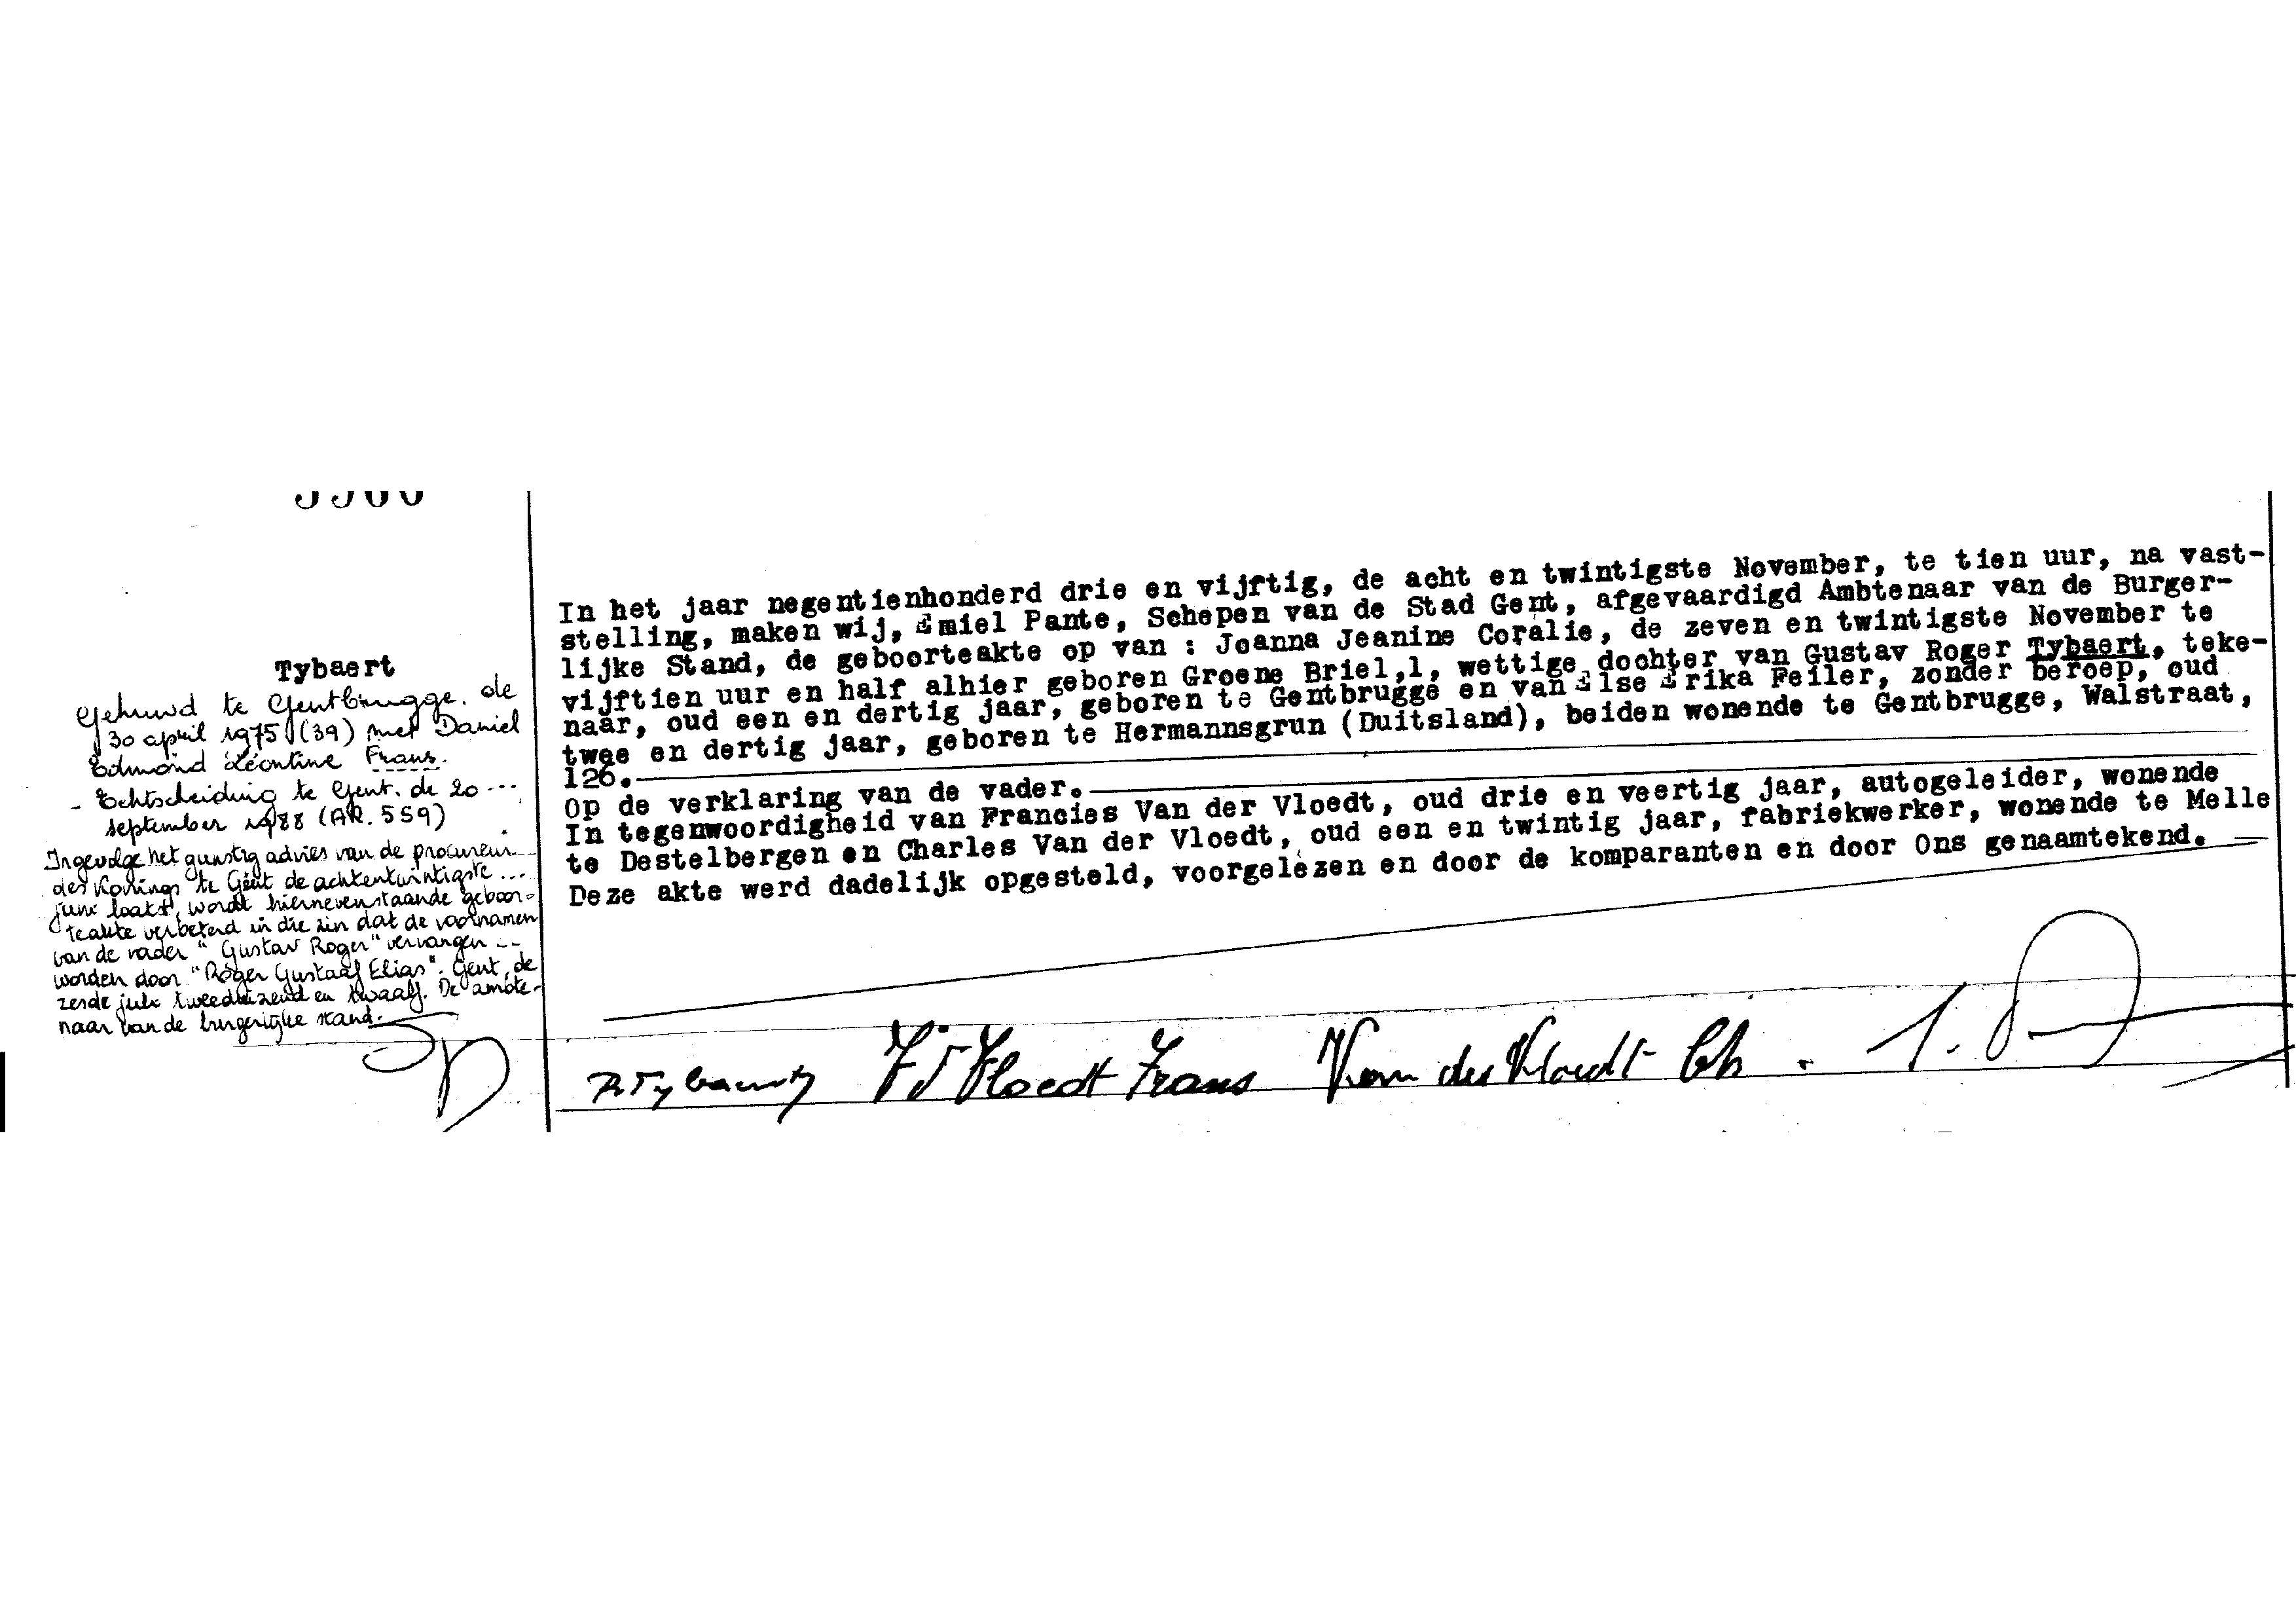 Tybaert
Gehuwd te Gentbrugge. de
30 april 1975 (39) met Daniel
Edmond Léontine Frans.
- Echtscheiding te Gent. de 20 ---
september 1988 (AR. 559)
Ingevolge het gunstig advies van de procureur
des Konings te Gent de achtentwintigste ---
juni laatst, wordt hiernevenstaande geboor-
teakte verbeterd in die zin dat de voornamen
van de vader "Gustav Roger" vervangen --
worden door "Roger Gustaaf Elias". Gent, de
zesde juli tweeduizend en twaalf. De ambte-
naar van de burgerlijke stand.
In het jaar negentienhonderd drie en vijftig, de acht en twintigste November, te tien uur, na vast-
stelling, maken wij, Emiel Pante, Schepen van de Stad Gent, afgevaardigd Ambtenaar van de Burger-
lijke Stand, de geboorteakte op van : Joanna Jeanine Coralie, de zeven en twintigste November te
vijftien uur en half alhier geboren Groene Briel,1, wettige dochter van Gustav Roger Tybaert, teke-
naar, oud een en dertig jaar, geboren te Gentbrugge en van Else Erika Feiler, zonder beroep, oud
twee en dertig jaar, geboren te Hermannsgrun (Duitsland), beiden wonende te Gentbrugge, Walstraat,
126.
Op de verklaring van de vader.
In tegenwoordigheid van Francies Van der Vloedt, oud drie en veertig jaar, autogeleider, wonende
te Destelbergen en Charles Van der Vloedt, oud een en twintig jaar, fabriekwerker, wonende te Melle
Deze akte werd dadelijk opgesteld, voorgelezen en door de komparanten en door Ons genaamtekend.
R. Tybaert Vd Vloedt Frans Van der Vloedt Ch.